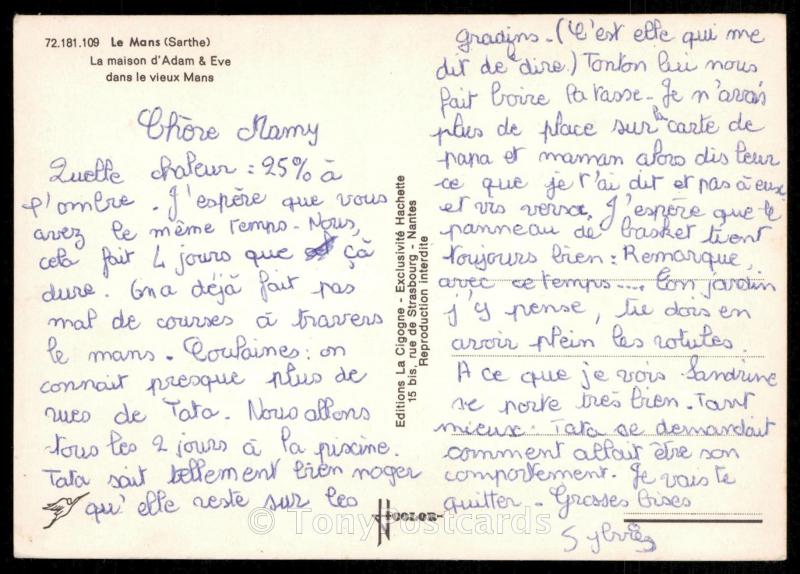 72.181.109 Le Mans (Sarthe)
La maison d'Adam & Eve
dans le vieux Mans
Chère Mamy
Quelle chaleur : 25% à
l'ombre. J'espère que vous
avez le même temps. Nous,
cela fait 4 jours que çà
dure. On a déjà fait pas
mal de courses à travers
le mans. Coulaines : on
connait presque plus de
rues de Tata. Nous allons
tous les 2 jours à la piscine.
Tata sait tellement bien nager
qu'elle reste sur les
Editions La Cigogne - Exclusivité Hachette
15 bis, rue de Strasbourg - Nantes
Reproduction interdite
COLOR
gradins. (C'est elle qui me
dit de dire.) Tonton lui nous
fait boire la tasse. Je n'avais
plus de place sur la carte de
papa et maman alors dis leur
ce que je t'ai dit et pas à eux
et vis versa. J'espère que le
panneau de basket tient
toujours bien : Remarque,
avec ce temps.... Ton jardin
j'y pense, tu dois en
avoir plein les rotules.
A ce que je vois Sandrine
se porte très bien. Tant
mieux. Tata se demandait
comment allait être son
comportement. Je vais te
quitter. Grosses bises
© TonyPostcards